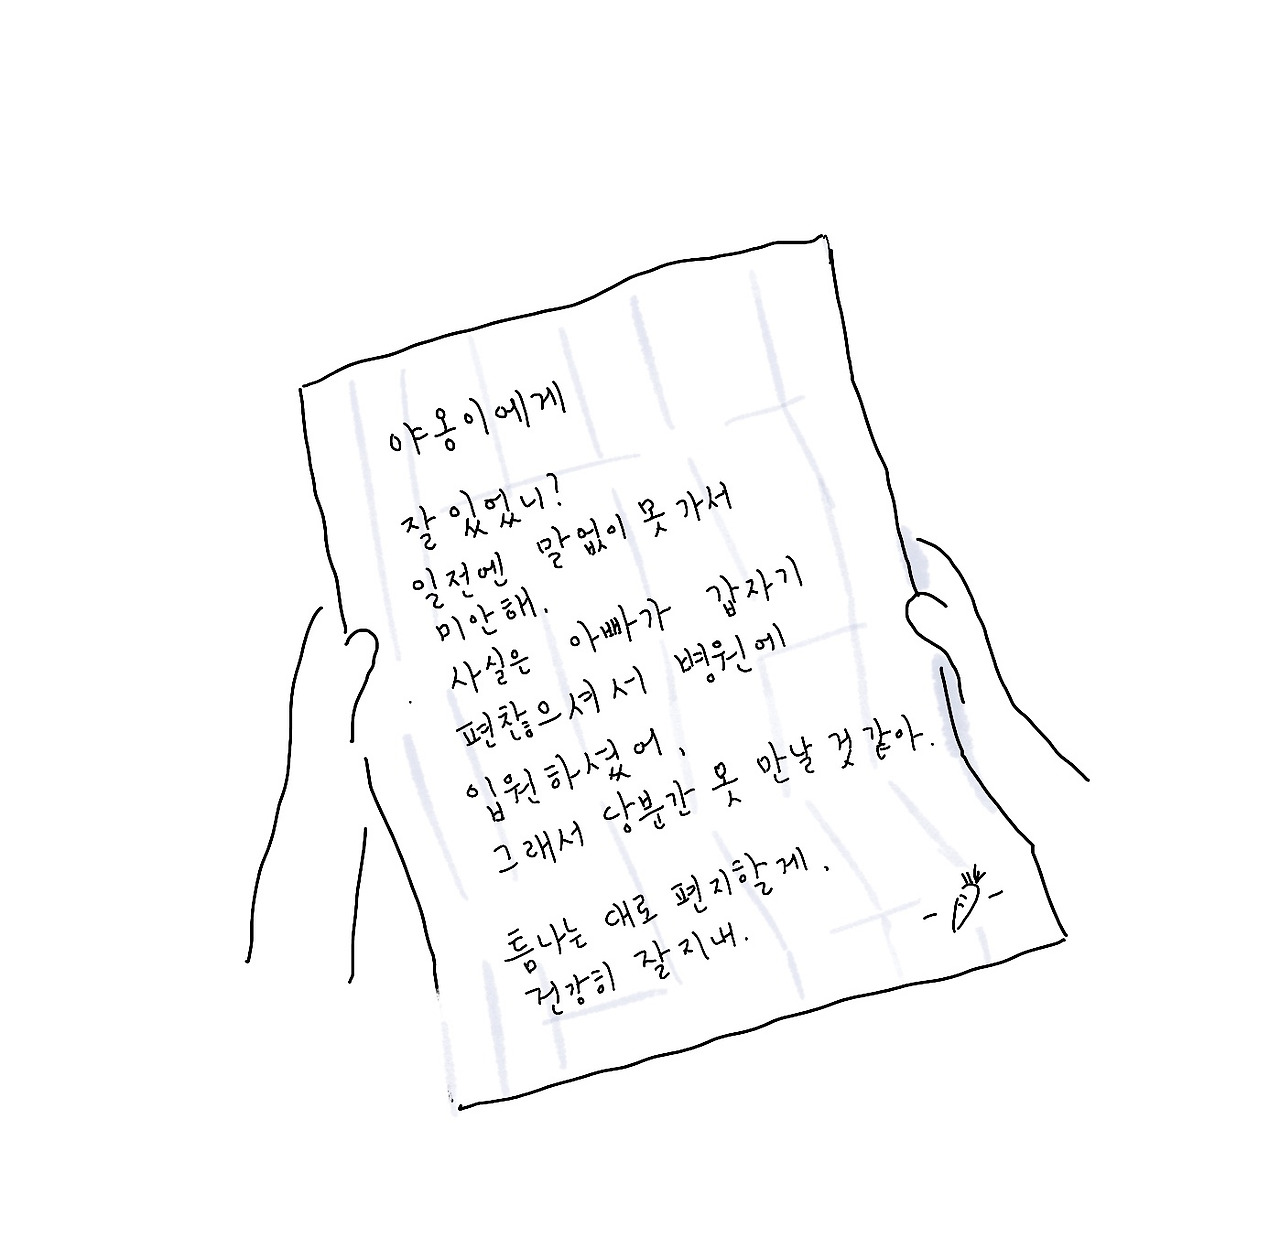 야옹이에게
잘 있었니?
일전엔 말없이 못 가서
미안해.
사실은 아빠가 갑자기
편찮으셔서 병원에
입원하셨어.
그래서 당분간 못 만날 것 같아.
틈나는 대로 편지할게.
건강히 잘 지내.